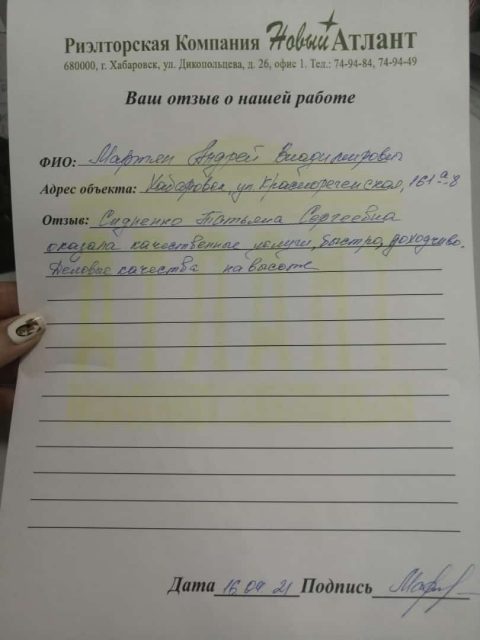 Риэлторская Компания Новый Атлант
680000, г. Хабаровск, ул. Дикопольцева, д. 26, офис 1. Тел.: 74-94-84, 74-94-49
Ваш отзыв о нашей работе
ФИО: Мартын Андрей Владимирович
Адрес объекта: Хабаровск, ул. Краснореченская, 161а-8
Отзыв: Сидренко Татьяна Сергеевна
оказала качественные услуги, быстро, доходчиво.
Деловые качества на высоте
АТЛАНТ
Дата 16 04 21 Подпись